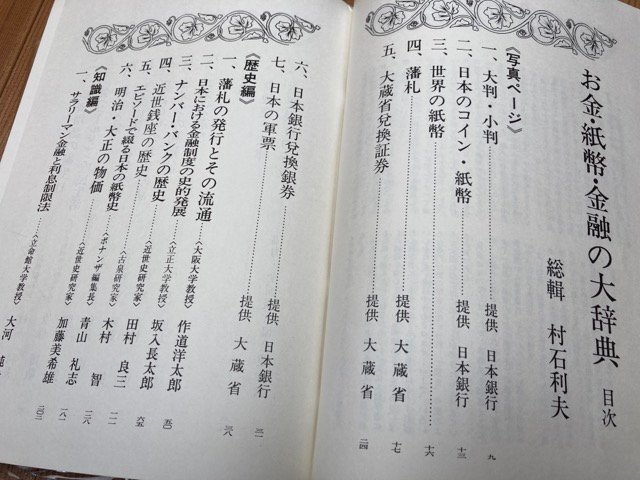 お金・紙幣・金融の大辞典 目次
総輯 村石利夫
《写真ページ》
一、大判・小判…………提供 日本銀行 九
二、日本のコイン・紙幣…………提供 日本銀行 十三
三、世界の紙幣…………十六
四、藩札…………提供 大蔵省 十七
五、大蔵省兌換証券…………提供 大蔵省 二四
六、日本銀行兌換銀券…………提供 日本銀行
七、日本の軍票…………提供 大蔵省
《歴史編》
一、藩札の発行とその流通…………〈大阪大学教授〉 作道洋太郎
二、日本における金融制度の史的発展……〈立正大学教授〉 坂入長太郎
三、ナンバー・バンクの歴史…………〈近世史研究家〉 田村良三
四、近世銭座の歴史…………〈古泉研究家〉 木村智
五、エピソードで綴る日本の紙幣史……〈ボナンザ編集長〉 青山礼志
六、明治・大正の物価…………〈近世史研究家〉 加藤美希雄
《知識編》
一、サラリーマン金融と利息制限法……〈立命館大学教授〉 大河純